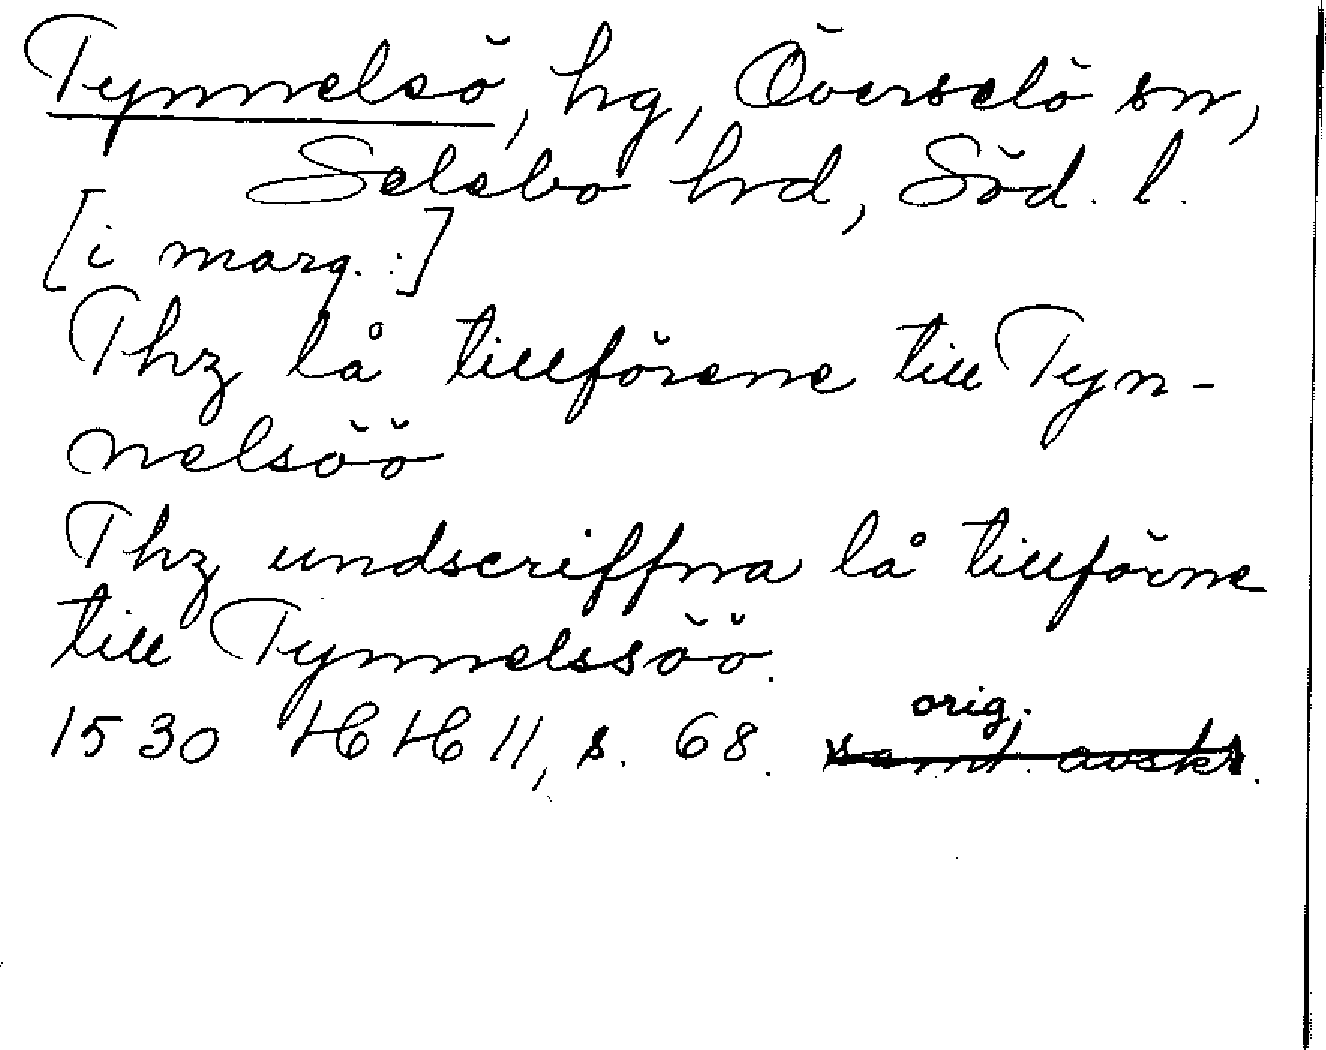 Tynnelsö, hg, Överselö sn,
Selebo hrd, Söd. l.
[i marg.:]
Thz lå tillförene till Tyn-
nelsöö
Thz undscriffna lå tillförne
till Tynnelssöö.
orig.
1530 HH 11, s. 68. samt. avskr.